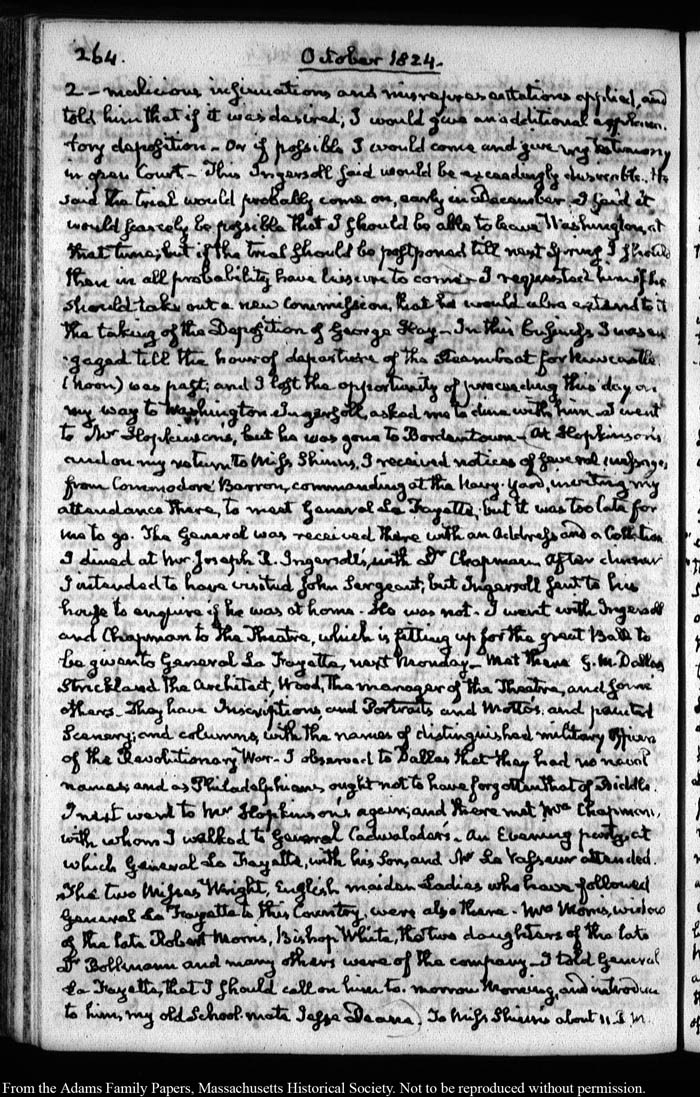 264. October 1824.
2 – malicious insinuations and misrepresentations applied, and
told him that if it was desired, I would give an additional explana-
tory deposition – Or if possible I would come and give my testimony
in open Court – This Ingersoll said would be exceedingly desirable. He
said the trial would probably come on, early in December – I said it
would scarcely be possible that I should be able to leave Washington, at
that time; but if the trial should be postponed till next Spring I should
then in all probability have leisure to come – I requested him if he
should take out a new Commission, that he would also extend to it
the taking of the Deposition of George Hay – In this business I was en-
gaged till the hour of departure of the Steamboat for Newcastle
(noon) was past; and I lost the opportunity of proceeding this day on
my way to Washington – Ingersoll, asked me to dine with him – I went
to Mr Hopkinson's, but he was gone to Bordentown – At Hopkinson's
and on my return to Miss Shinn's, I received notices of several messages
from Commodore Barron, commanding at the Navy-Yard, inviting my
attendance there, to meet General La Fayette, but it was too late for
me to go. The General was received there with an Address and a Collation
I dined at Mr Joseph R. Ingersoll's, with Dr Chapman. After dinner
I intended to have visited John Sergeant; but Ingersoll sent to his
house to enquire if he was at home – He was not – I went with Ingersoll
and Chapman to the Theatre, which is fitting up for the great Ball to
be given to General La Fayette, next Monday – Met there G. M. Dallas,
Strickland the Architect, Wood, the manager of the Theatre, and some
others – They have Inscriptions, and Portraits and Mottos, and painted
Scenery; and columns, with the names of distinguished military Officers
of the Revolutionary War – I observed to Dallas that they had no naval
names, and as Philadelphians ought not to have forgotten that of Biddle.
I next went to Mr Hopkinson's again; and there met Mrs Chapman,
with whom I walked to General Cadwalader's – An Evening party, at
which General La Fayette, with his Son, and Mr La Vasseur attended.
The two Misses Wright, English maiden Ladies who have followed
General La Fayette to this Country, were also there – Mrs Morris, widow
of the late Robert Morris, Bishop White, the two daughters of the late
Dr Bollmann and many others were of the company – I told General
La Fayette, that I should call on him to-morrow Morning, and introduce
to him, my old School-mate Jesse Deane. To Miss Shinn's about 11. P.M.
From the Adams Family Papers, Massachusetts Historical Society. Not to be reproduced without permission.